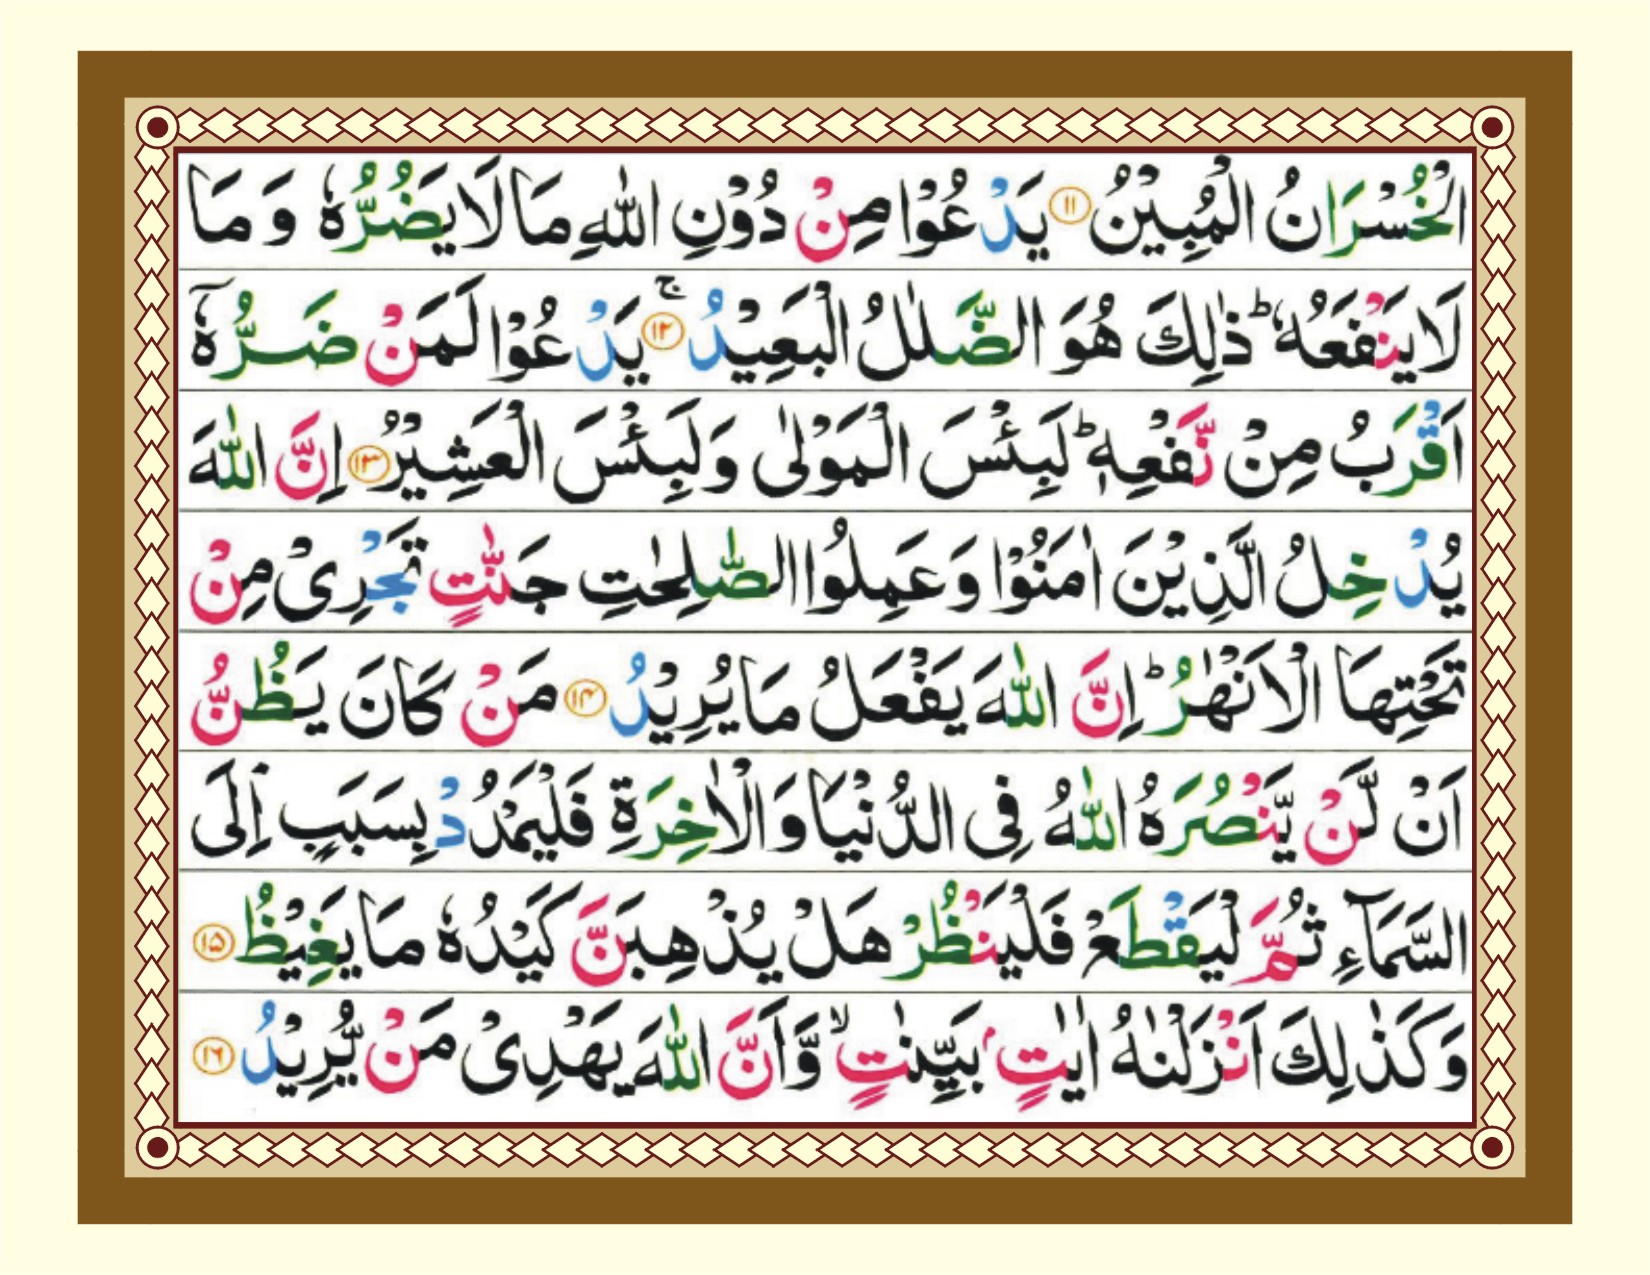 الْخُسْرَانُ الْمُبِيْنُ ﴿۱۱﴾ يَدْعُوْا مِنْ دُوْنِ اللّٰهِ مَا لَا يَضُرُّهٗ وَ مَا
لَا يَنْفَعُهٗ ؕ ذٰلِكَ هُوَ الضَّلٰلُ الْبَعِيْدُ ۚ﴿۱۲﴾ يَدْعُوْا لَمَنْ ضَرُّهٗۤ
اَقْرَبُ مِنْ نَّفْعِهٖ ؕ لَبِئْسَ الْمَوْلٰى وَلَبِئْسَ الْعَشِيْرُ ﴿۱۳﴾ اِنَّ اللّٰهَ
يُدْخِلُ الَّذِيْنَ اٰمَنُوْا وَعَمِلُوا الصّٰلِحٰتِ جَنّٰتٍ تَجْرِىْ مِنْ
تَحْتِهَا الْاَنْهٰرُ ؕ اِنَّ اللّٰهَ يَفْعَلُ مَا يُرِيْدُ ﴿۱۴﴾ مَنْ كَانَ يَظُنُّ
اَنْ لَّنْ يَّنْصُرَهُ اللّٰهُ فِى الدُّنْيَا وَالْاٰخِرَةِ فَلْيَمْدُدْ بِسَبَبٍ اِلَى
السَّمَآءِ ثُمَّ لْيَقْطَعْ فَلْيَنْظُرْ هَلْ يُذْهِبَنَّ كَيْدُهٗ مَا يَغِيْظُ ﴿۱۵﴾
وَكَذٰلِكَ اَنْزَلْنٰهُ اٰيٰتٍۭ بَيِّنٰتٍ ۙ وَّاَنَّ اللّٰهَ يَهْدِىْ مَنْ يُّرِيْدُ ﴿۱۶﴾